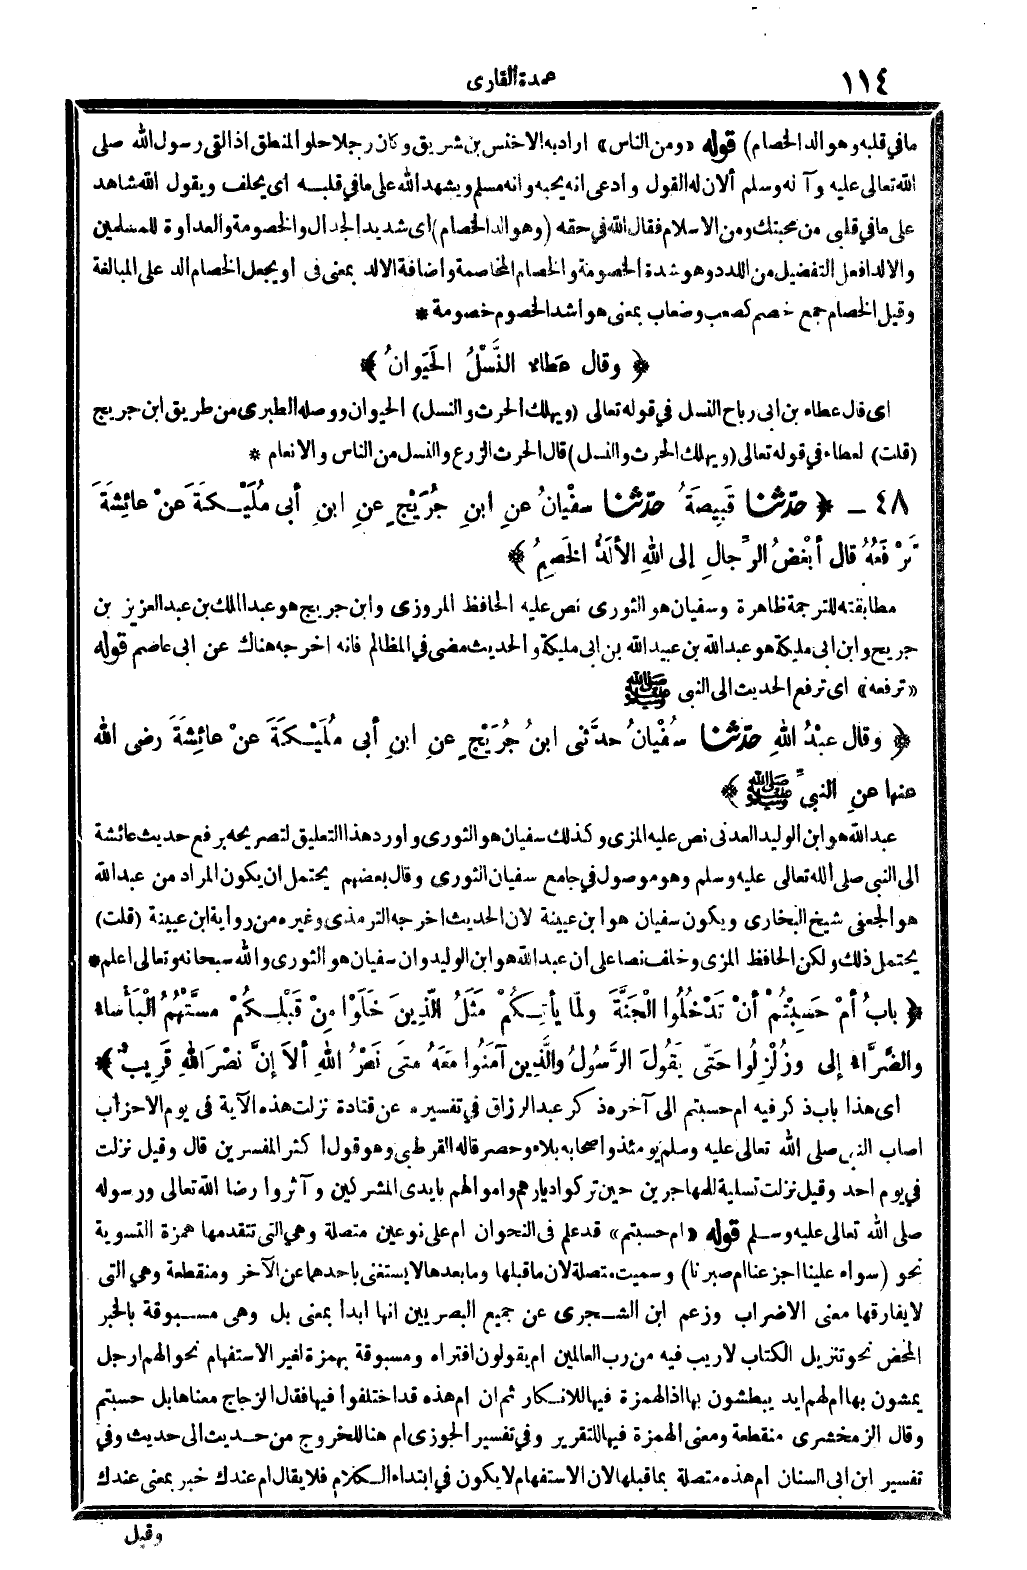 ١١٤
عمدة القارى
مافي قلبه وهو الد الخصام) قوله «ومن الناس» اراد به الاخنس بن شريق وكان رجلا حلو المنطق اذا لقى رسول الله صلى
الله تعالى عليه وآ له وسلم ألان له القول وادعى انه يحبه وانه مسلم ويشهد الله على مافي قلبــه اى يحلف ويقول الله شاهد
على مافي قلبى من محبتك ومن الاسلام فقال الله في حقه (وهو الد الخصام) اى شديد الجدال والخصومة والعداوة للمسلمين
والالد افعل التفضيل من اللدد وهو شدة الخصومة والخصام المخاصمة واضافة الالد بمعنى فى او يجعل الخصام الد على المبالغة
وقيل الخصام جمع خصم كصعب وصعاب بمعنى هو اشد الخصوم خصومة *
﴿ وقال عطاء النَّسْلُ الحَيَوانُ ﴾
اى قال عطاء بن ابى رباح النسل في قوله تعالى (ويهلك الحرث والنسل) الحيوان ووصله الطبرى من طريق ابن جريج
(قلت) لعطاء في قوله تعالى (ويهلك الحرث والنسل) قال الحرث الزرع والنسل من الناس والانعام *
٤٨ ــ ﴿ حدّثنا قَبِيصَةُ حدّثنا سفْيانُ عنِ ابنِ جُرَيْجٍ عنِ ابنِ أبى مُلَيْـكَةَ عنْ عائِشَةَ
تَرْفَعُهُ قال أبْغَضُ الرِّجالِ إلى اللهِ الألَدُّ الخَصِمُ ﴾
مطابقته للترجمة ظاهرة وسفيان هو الثورى نص عليه الحافظ المروزى وابن جريج هو عبد الملك بن عبد العزيز بن
جريج وابن ابى مليكة هو عبد الله بن عبيد الله بن ابى مليكة والحديث مضى في المظالم فانه اخرجه هناك عن ابى عاصم قوله
«ترفعه» اى ترفع الحديث الى النبى ﷺ
﴿ وقال عبْدُ اللهِ حدّثنا سُفْيانُ حدثَّنى ابنُ جُرَيْجٍ عنِ ابنِ أبى مُلَيْـكَةَ عنْ عائِشَةَ رضى الله
عنها عنِ النبىِّ ﷺ ﴾
عبد الله هو ابن الوليد العدنى نص عليه المزى وكذلك سفيان هو الثورى واورد هذا التعليق لتصريحه برفع حديث عائشة
الى النبى صلى الله تعالى عليه وسلم وهو موصول في جامع سفيان الثورى وقال بعضهم يحتمل ان يكون المراد من عبد الله
هو الجعفى شيخ البخارى ويكون سفيان هو ابن عيينة لان الحديث اخرجه الترمذى وغيره من رواية ابن عيينة (قلت)
يحتمل ذلك ولكن الحافظ المزى وخلف نصا على ان عبد الله هو ابن الوليد وان سفيان هو الثورى والله سبحانه وتعالى اعلم *
﴿ بابُ أمْ حَسِبْتُمْ أنْ تَدْخُلُوا الْجَنَّةَ ولمّا يأتِـكُمْ مَثَلُ الّذِينَ خَلَوْا مِنْ قَبْلِـكُمْ مسَّتْهُمُ الْبَأساء
والضَّرَّاء إلى وزُلْزِلُوا حَتّى يَقُولَ الرَّسُولُ والَّذِين آمَنُوا مَعَهُ متَى نَصْرُ اللهِ ألاَ إنَّ نصْرَ اللهِ قَرِيبٌ ﴾
اى هذا باب ذكر فيه ام حسبتم الى آخره ذكر عبد الرزاق في تفسيره عن قتادة نزلت هذه الآية فى يوم الاحزاب
اصاب النبى صلى الله تعالى عليه وسلم يومئذ واصحابه بلاء وحصر قاله القرطبى وهو قول اكثر المفسرين قال وقيل نزلت
في يوم احد وقيل نزلت تسلية للمهاجرين حين تركوا ديارهم واموالهم بايدى المشركين وآثروا رضا الله تعالى ورسوله
صلى الله تعالى عليه وسـلم قوله «ام حسبتم» قد علم فى النحو ان ام على نوعين متصلة وهى التى تتقدمها همزة التسوية
نحو (سواء علينا اجزعنا ام صبرنا) وسميت متصلة لان ماقبلها ومابعدها لايستغنى باحدهما عن الآخر ومنقطعة وهى التى
لايفارقها معنى الاضراب وزعم ابن الشـجرى عن جميع البصريين انها ابدا بمعنى بل وهى مسـبوقة بالخبر
المحض نحو تنزيل الكتاب لاريب فيه من رب العالمين ام يقولون افتراه ومسبوقة بهمزة لغير الاستفهام نحو الهم ارجل
يمشون بها ام لهم ايد يبطشون بها اذ الهمزة فيها للانـكار ثم ان ام هذه قد اختلفوا فيها فقال الزجاج معناها بل حسبتم
وقال الزمخشرى منقطعة ومعنى الهمزة فيها للتقرير وفي تفسير الجوزى ام هنا للخروج من حـديث الى حديث وفي
تفسير ابن ابى السنان ام هذه متصلة بما قبلها لان الاستفهام لايكون في ابتداء الـكلام فلا يقال ام عندك خبر بمعنى عندك
وقيل